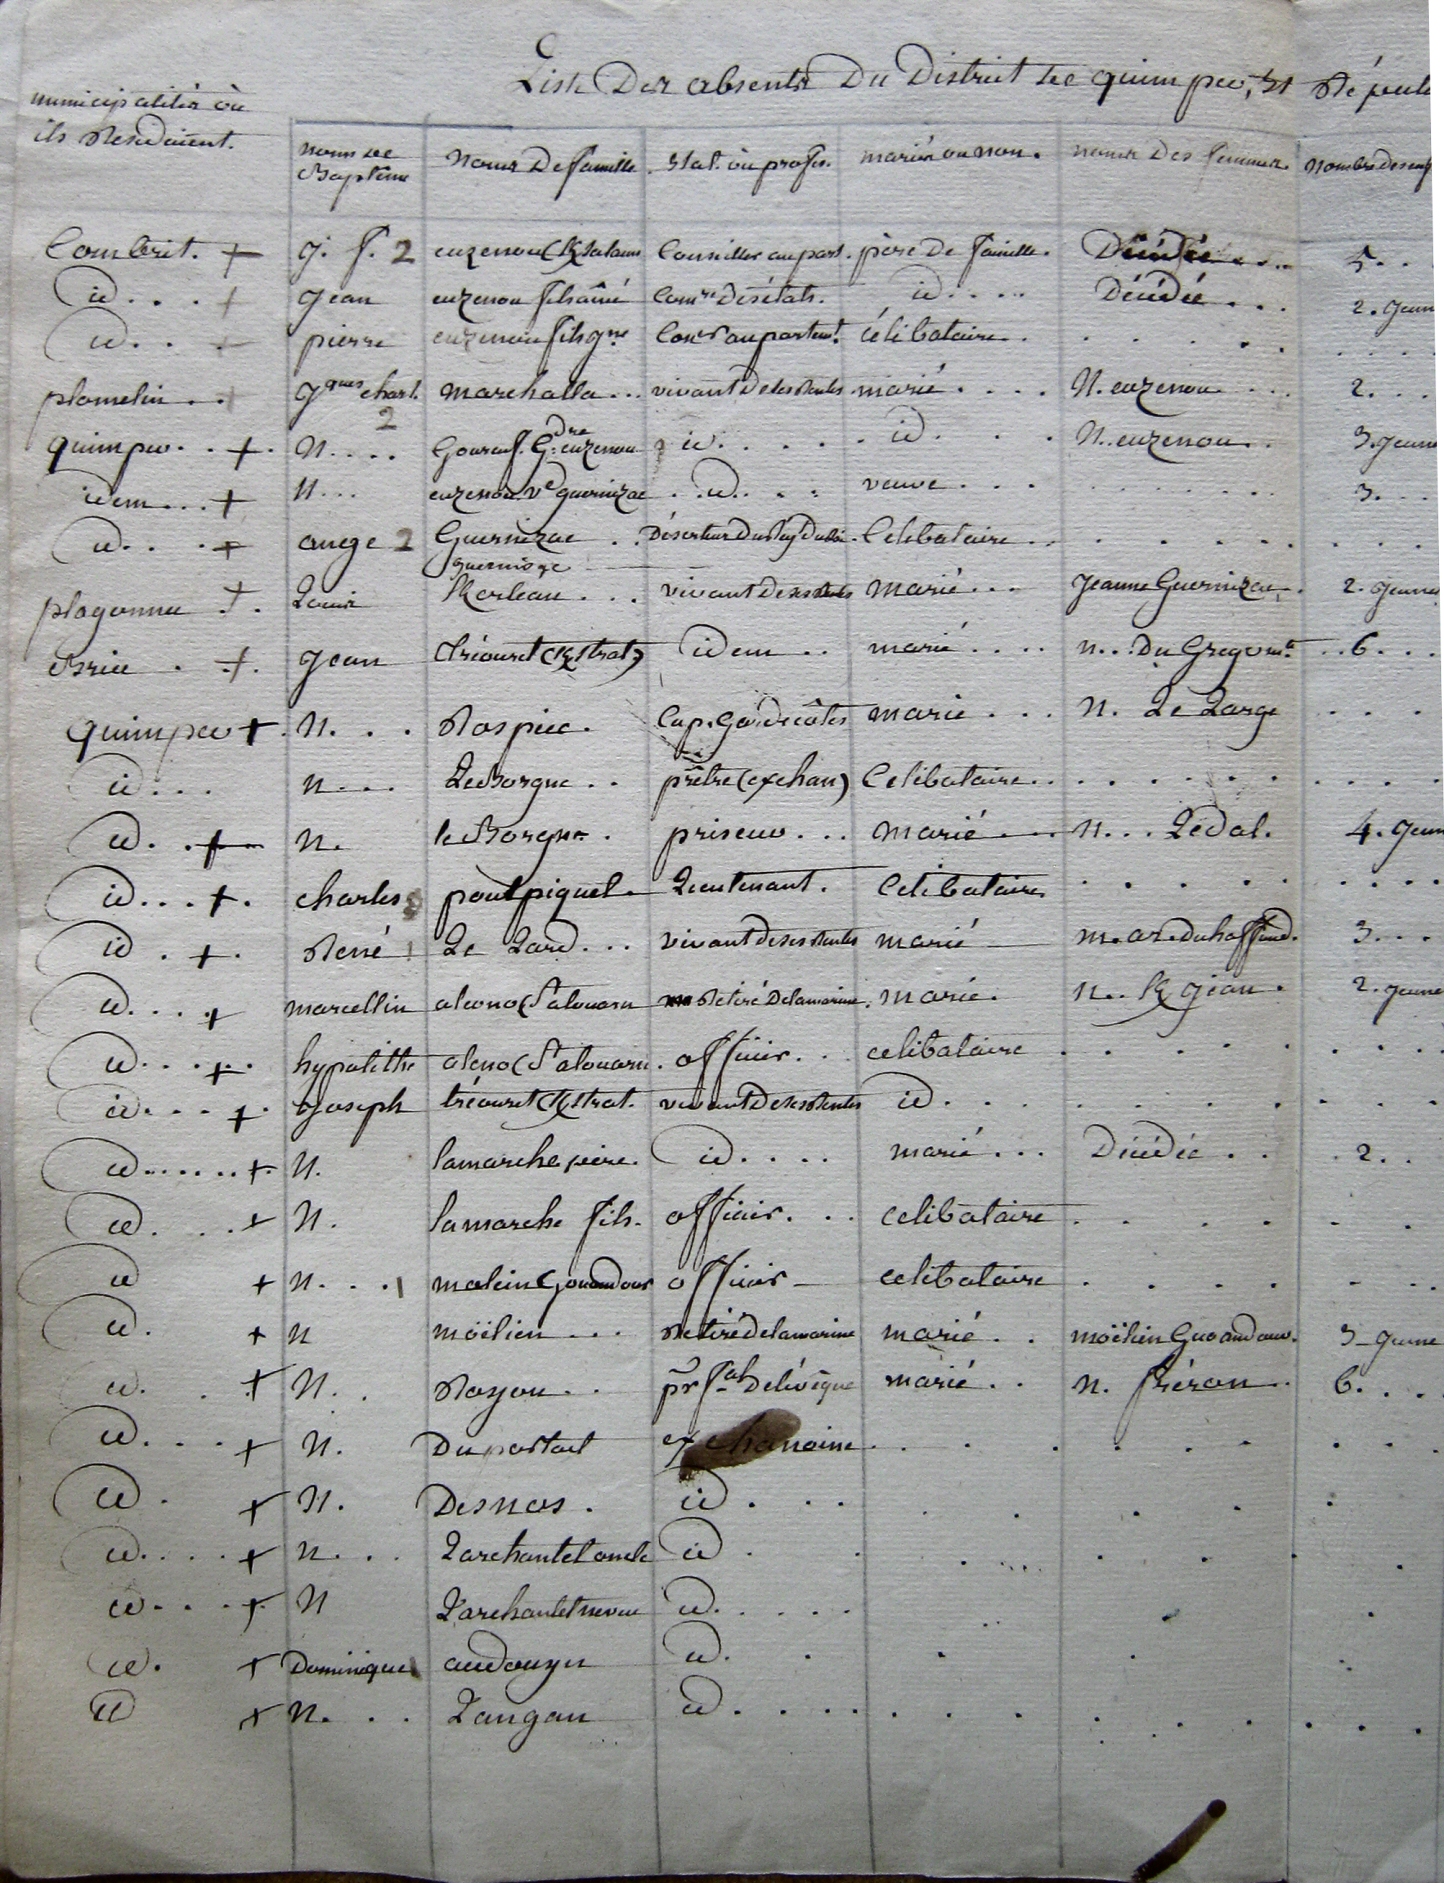 Liste Des absents Du District de quimper, et Répute
municipalités où
ils Residoient.
noms de Baptême | Noms De famille | Etat où profes. | mariés ou non. | noms Des femmes. | Nombre des enf
Combrit. + | J. f. 2 | euzenou (Kersalaun | Conseiller au parl. | père De famille. | Décédée . . . | 5. .
id. . . . + | Jean | euzenou fils aîné | Comre Des états. | id . . . . | Décédée . . . | 2. jeun
id . . . + | pierre | euzenou fils jne | Conser au parlemt. | célibataire .
plomelin . . + | Jques charl. 2 | marchalla . . . | vivant De ses Rentes | marié . . . . | N. euzenou . . . | 2. . .
quimper . . + . | N. . . . | Gourcuf. Gdre euzenou | id . . . . . | id . . . | N. euzenou . . | 3. jeune
idem . . . + | N . . . | euzenou ve guernizac | . id . . . . | veuve . . . | . . . . | 3. . .
id . . . . + | ange 2 | Guernizac . . | Déserteur Du Reg Dubois . | Celibataire . .
plogonnec + . | Louis | guernisac Kerleau . . . | vivant De ses Rentes | marié . . . | Jeanne Guernizac . | 2. jeunes
Briec . + . | Jean | tréouret (Kerstrat) | idem . . | marié . . . . | n. . . Du Gregomt. | . . 6. . .
quimper + . | N. . . . | Rospiec . | Cap. Garde côtes | marié . . . | N. Le Large
id . . . | n . . . | Le Borgne . . | prêtre (ex chan) | Celibataire . .
id . . + | N. | le Borgne . | priseur . . . | marié | n . . . Ledal. | 4. jeun
id . . . + . | charles | poulpiquet . | Lieutenant . | Celibataire
id . + . | René | Le Lard . . . | vivant De ses Rentes | marié | m. ar. Duhaffond. | 3. . .
id . . . + | marcellin | aleno (St alouarn | Retiré De la marine . | marié . | n. . Kerjean . | 2. jeune
id . . . + . | hypolithe | aleno (St alouarn . | officier . . . | celibataire
id . . . + . | Joseph | tréouret (Kerstrat . | vivant De ses Rentes | id . . .
id . . . . . + | N. | lamarche père . | id . . . . | marié . . . | Décédée . . | . 2. .
id . . + | N. | lamarche fils . | officier . . . | celibataire
id + | n. . . . | moëlien (Gouandour | officier | celibataire
id . + | N | moëlien . . . | Retiré De la marine | marié . . | moëlien Guoandour . | 3 jeune
id . . + | N. . | Royou . . | pr fcal De l'évêque | marié . . | n. fréron . | 6. . .
id . . . + | N. | Duportail | ex chanoine
id . + | N. | Desnos . | id . . .
id . . . . + | n . . . | Larchantel oncle | id .
id . . . + | N | Larchantel neveu | id . . . . .
id . + | Dominique | audouyn | id . .
id + | n. . . | Langan | id . . . .